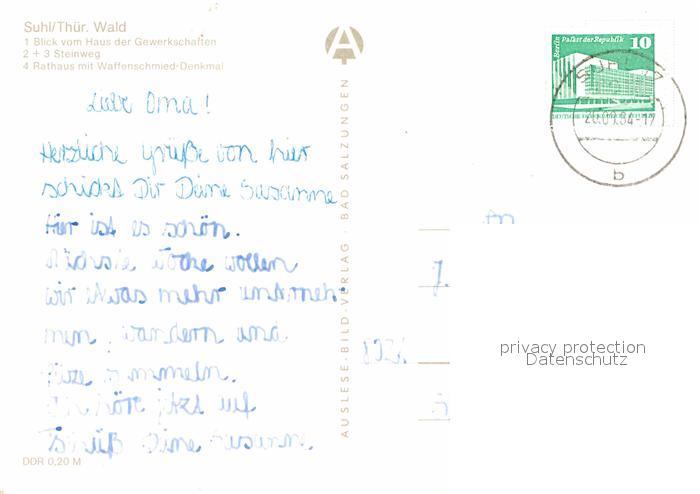 Suhl/Thür. Wald
1 Blick vom Haus der Gewerkschaften
2 + 3 Steinweg
4 Rathaus mit Waffenschmied-Denkmal
Liebe Oma!
Herzliche Grüße von hier
schickt Dir Deine Susanne
Hier ist es schön.
Nächste Woche wollen
wir etwas mehr unterneh-
men, wandern und
Pilze sammeln.
Ich höre jetzt auf
Tschüß Deine Susann.
DDR 0,20 M
AUSLESE-BILD-VERLAG · BAD SALZUNGEN
Berlin Palast der Republik
10
DEUTSCHE DEMOKRATISCHE REPUBLIK
SUHL
84-17
b
An
J.
privacy protection
Datenschutz